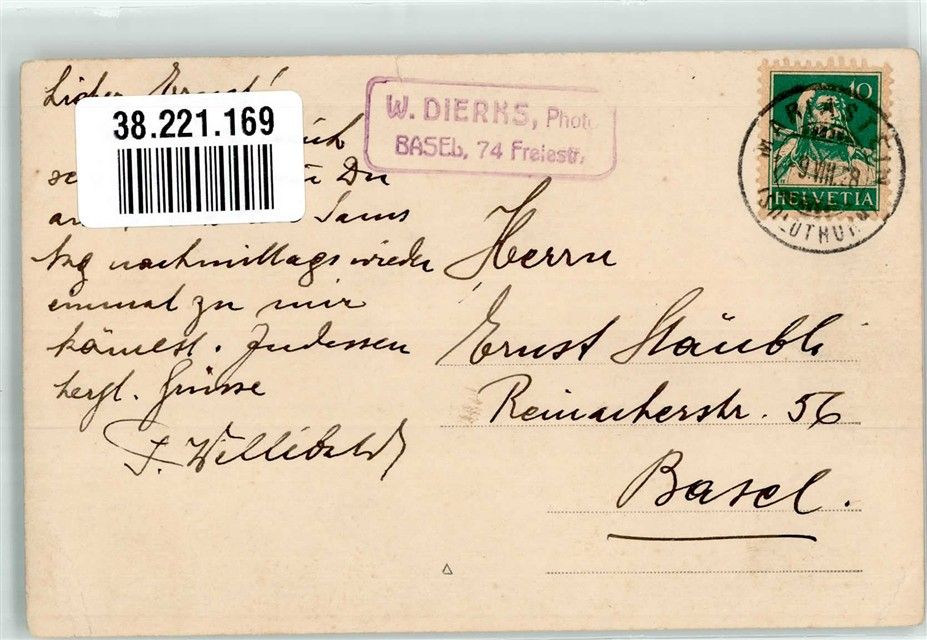 Lieber Ernst!
38.221.169
ich
Du
Sams
tag nachmittags wieder
einmal zu mir
kämest. Indessen
herzl. Grüsse
P. Willibald
W. DIERKS, Photo
BASEL, 74 Freiestr.
10
HELVETIA
MARIASTEIN
9.VIII.28
(SOLOTHURN)
Herrn
Ernst Stäubli
Reinacherstr. 56
Basel.